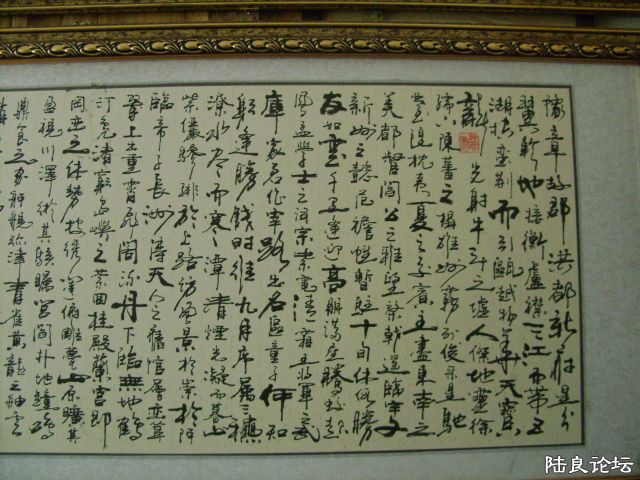 豫章故郡洪都新府星分
翼軫地接衡廬襟三江而帶五
湖控蠻荆而引甌越物華天寶
龍光射牛斗之墟人傑地靈徐
孺下陳蕃之榻雄州霧列俊采星馳
臺隍枕夷夏之交賓主盡東南之
美都督閻公之雅望棨戟遥臨宇文
新州之懿范襜帷暫駐十旬休假勝
友如雲千里逢迎高朋滿座騰蛟起
鳳孟學士之詞宗紫電清霜王將軍武
庫家君作宰路出名區童子何知
躬逢勝餞時維九月序屬三秋
潦水盡而寒潭清煙光凝而暮山
紫儼驂騑於上路訪風景於崇阿
臨帝子長洲得天人之舊館層巒聳
翠上出重霄飛閣流丹下臨無地鶴
汀鳧渚窮島嶼之縈回桂殿蘭宮即
岡巒之體勢披綉闥俯雕甍山原曠其
盈視川澤紆其駭矚閭閻扑地鐘鳴
鼎食之家舸艦彌津青雀黃龍之舳雲
陆良论坛